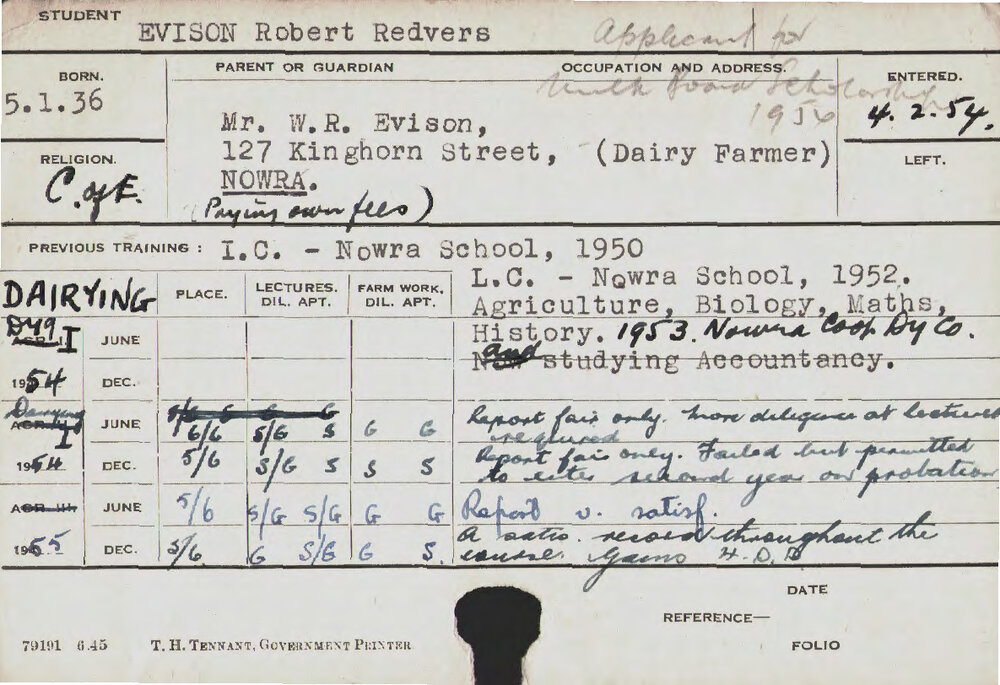 STUDENT
EVISON Robert Redvers
Applicant for
Milk Board Scholarship
1956
BORN.
PARENT OR GUARDIAN
OCCUPATION AND ADDRESS.
ENTERED.
5.1.36
4.2.54.
Mr. W.R. Evison,
127 Kinghorn Street, (Dairy Farmer)
NOWRA.
(Paying own fees)
RELIGION.
C. of E.
LEFT.
PREVIOUS TRAINING : I.C. - Nowra School, 1950
L.C. - Nowra School, 1952.
Agriculture, Biology, Maths,
History. 1953. Nowra Coop Dy Co.
and studying Accountancy.
DAIRYING PLACE. LECTURES. DIL. APT. FARM WORK. DIL. APT.
Dyg I JUNE
1954 DEC.
Dairying I JUNE 6/6 S/G S G G Report fair only. More diligence at lectures
required
1954 DEC. 5/6 S/G S S S Report fair only. Failed but permitted
to enter second year on probation
AGR. III. JUNE 5/6 S/G S/G G G Report v. satisf.
1955 DEC. 5/6. G S/G G S. A satis. record throughout the
course. Gains H.D.D.
DATE
REFERENCE—
FOLIO
79191 6.45 T. H. TENNANT, GOVERNMENT PRINTER